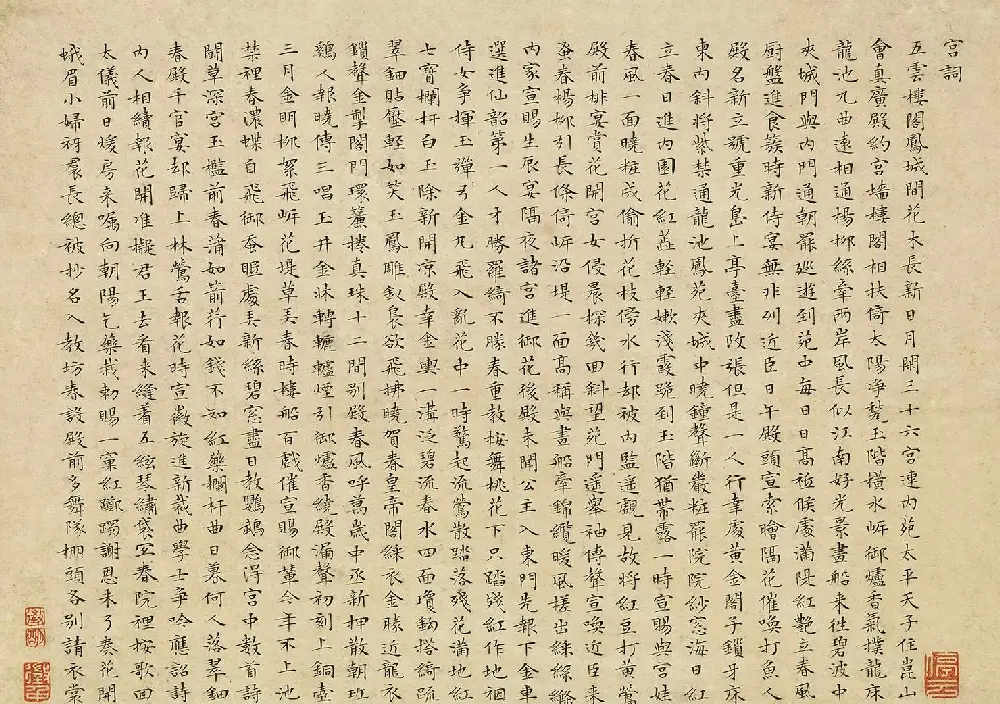 宮詞
五雲樓閣鳳城間花木長新日月閑三十六宮連內苑太平天子住崑山
會真廣殿約宮墻樓閣相扶倚太陽淨甃玉階橫水岍御爐香氣撲龍床
龍池九曲遠相通楊柳絲牽兩岸風長似江南好光景畫船來往碧波中
夾城門與內門通朝罷巡遊到苑中每日日高祗候處滿隄紅艷立春風
厨盤進食簇時新侍宴無非列近臣日午殿頭宣索鱠隔花催喚打魚人
殿名新立號重光島上亭臺盡改張但是一人行幸處黃金閣子鎖牙床
東內斜將紫禁通龍池鳳苑夾城中曉鐘聲斷嚴粧罷院院紗窓海日紅
立春日進內園花紅蕊輕輕嫩淺霞跪到玉階猶帶露一時宣賜與宮娃
春風一面曉粧成偷折花枝傍水行却被內監遙覷見故將紅豆打黃鶯
殿前排宴賞花開宮女侵晨探幾回斜望苑門遙舉袖傳聲宣喚近臣來
蚤春楊柳引長條倚岍沿堤一面高稱與畫船牽錦纜暖風搓出綵絲絛
內家宣賜生辰宴隔夜諸宮進御花後殿未聞公主入東門先報下金車
選進仙韶第一人才勝羅綺不勝春重教按舞桃花下只踏殘紅作地裀
侍女爭揮玉彈弓金丸飛入亂花中一時驚起流鶯散踏落殘花滿地紅
七寶欄杆白玉除新開凉殿幸金輿一溝泛碧流春水四面瓊鉤搭綺疏
翠鈿貼靨輕如笑玉鳳雕釵裊欲飛拂曉賀春皇帝閤綵衣金勝近龍衣
鎖聲金掣閤門環簾捲真珠十二間別殿春風呼萬歲中丞新押散朝班
鷄人報曉傳三唱玉井金床轉轆轤煙引御爐香繞殿漏聲初刻上銅壺
三月金明柳絮飛岍花堤草弄春時樓船百戲催宣賜御輦今年不上池
禁裡春濃蝶自飛御蚕眠處弄新絲碧窓盡日教鸚鵡念得宮中數首詩
鬭草深宮玉檻前春蒲如箭荇如錢不知紅藥欄杆曲日暮何人落翠鈿
春殿千官宴却歸上林鶯舌報花時宣徽旋進新裁曲學士爭吟應詔詩
內人相續報花開准擬君王去看來縫着五絃琴繡袋宜春院裡按歌回
太儀前日煖房來囑向朝陽乞藥栽勅賜一窠紅躑躅謝恩未了奏花開
蛾眉小婦砑裠長總被抄名入教坊春設殿前多舞隊棚頭各別請衣裳